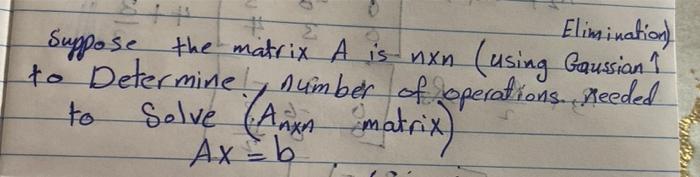 Elimination)
Suppose the matrix A is n×n (using Gaussian ↑
to Determine, number of operations needed
to Solve (Anxn matrix)
Ax = b